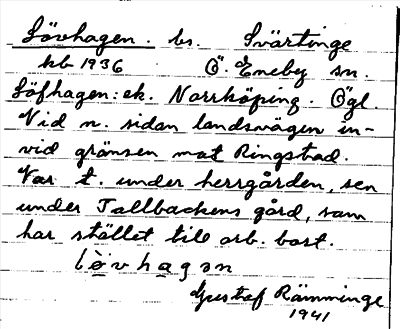 Lövhagen. bs. Svärtinge
kb 1936 Ö. Eneby sn.
Löfhagen: ek. Norrköping. Ögl.
Vid n. sidan landsvägen in-
vid gränsen mot Ringstad.
Var t. under herrgården, sen
under Tallbackens gård, som
har stället till arb. bost.
lövhagan
Gustaf Rämminge
1941